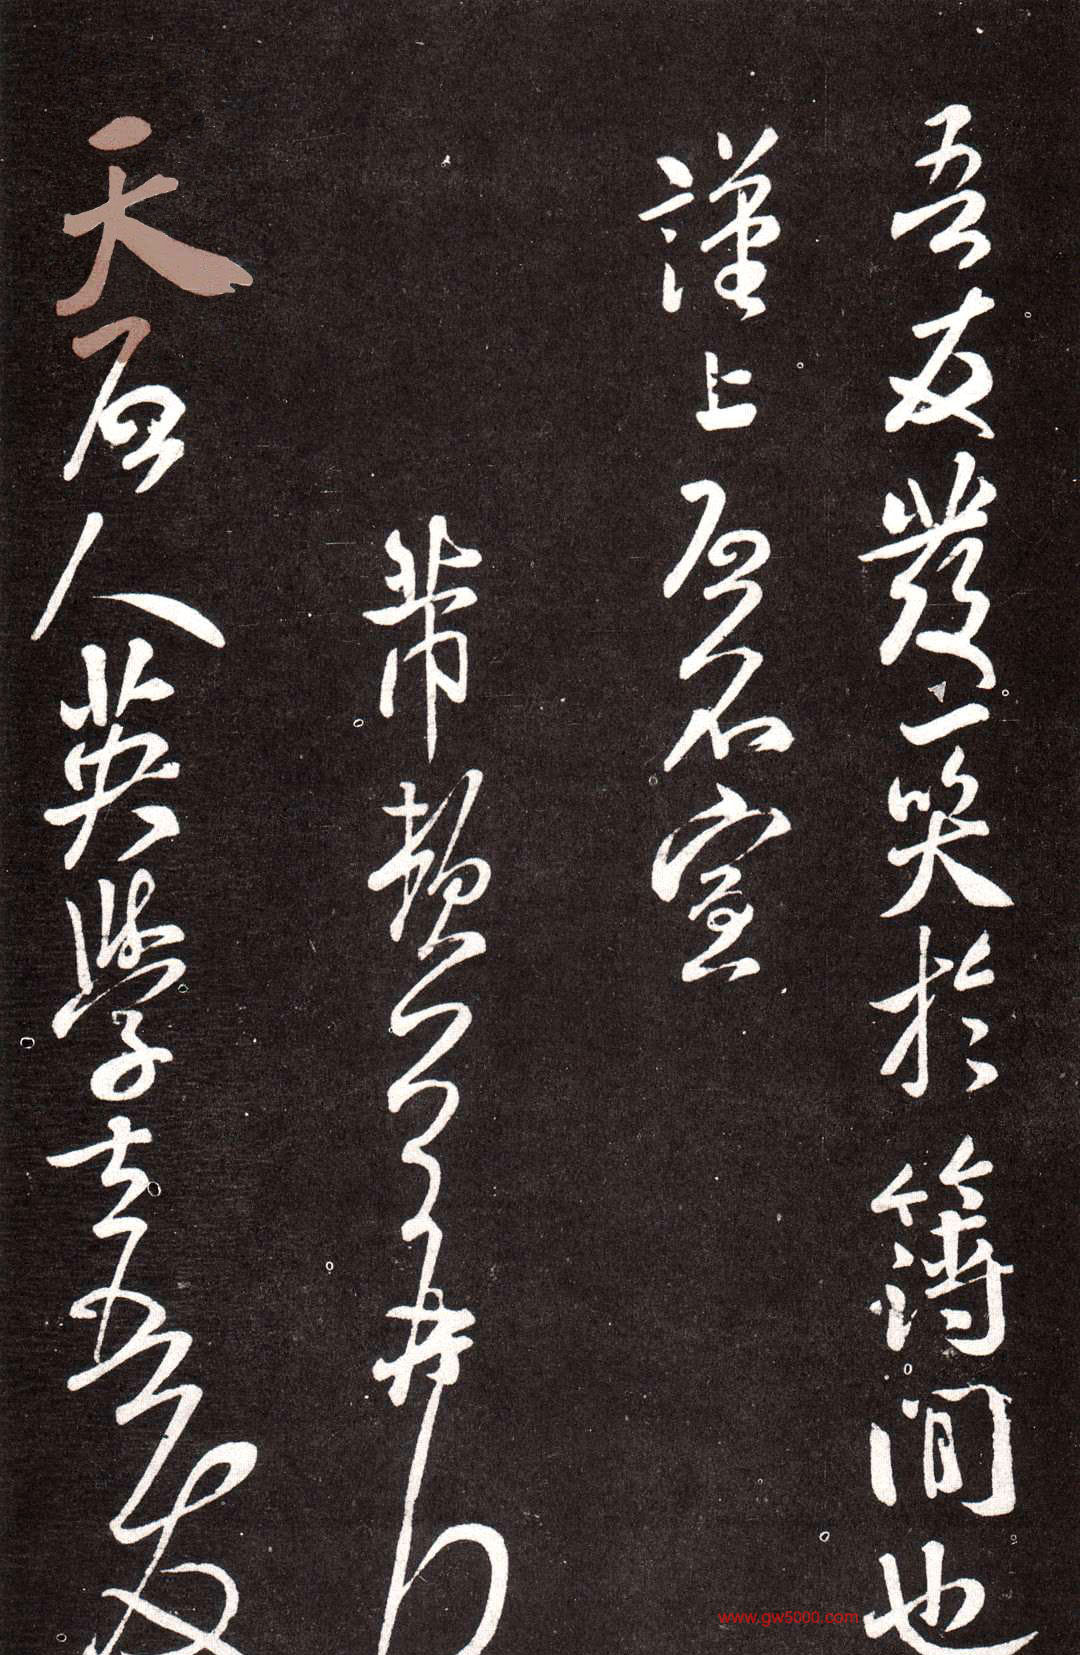 吾友發一笑於簿間也
謹上啓不宣
芾頓首再拜
天啓人英學士吾友
www.gw5000.com